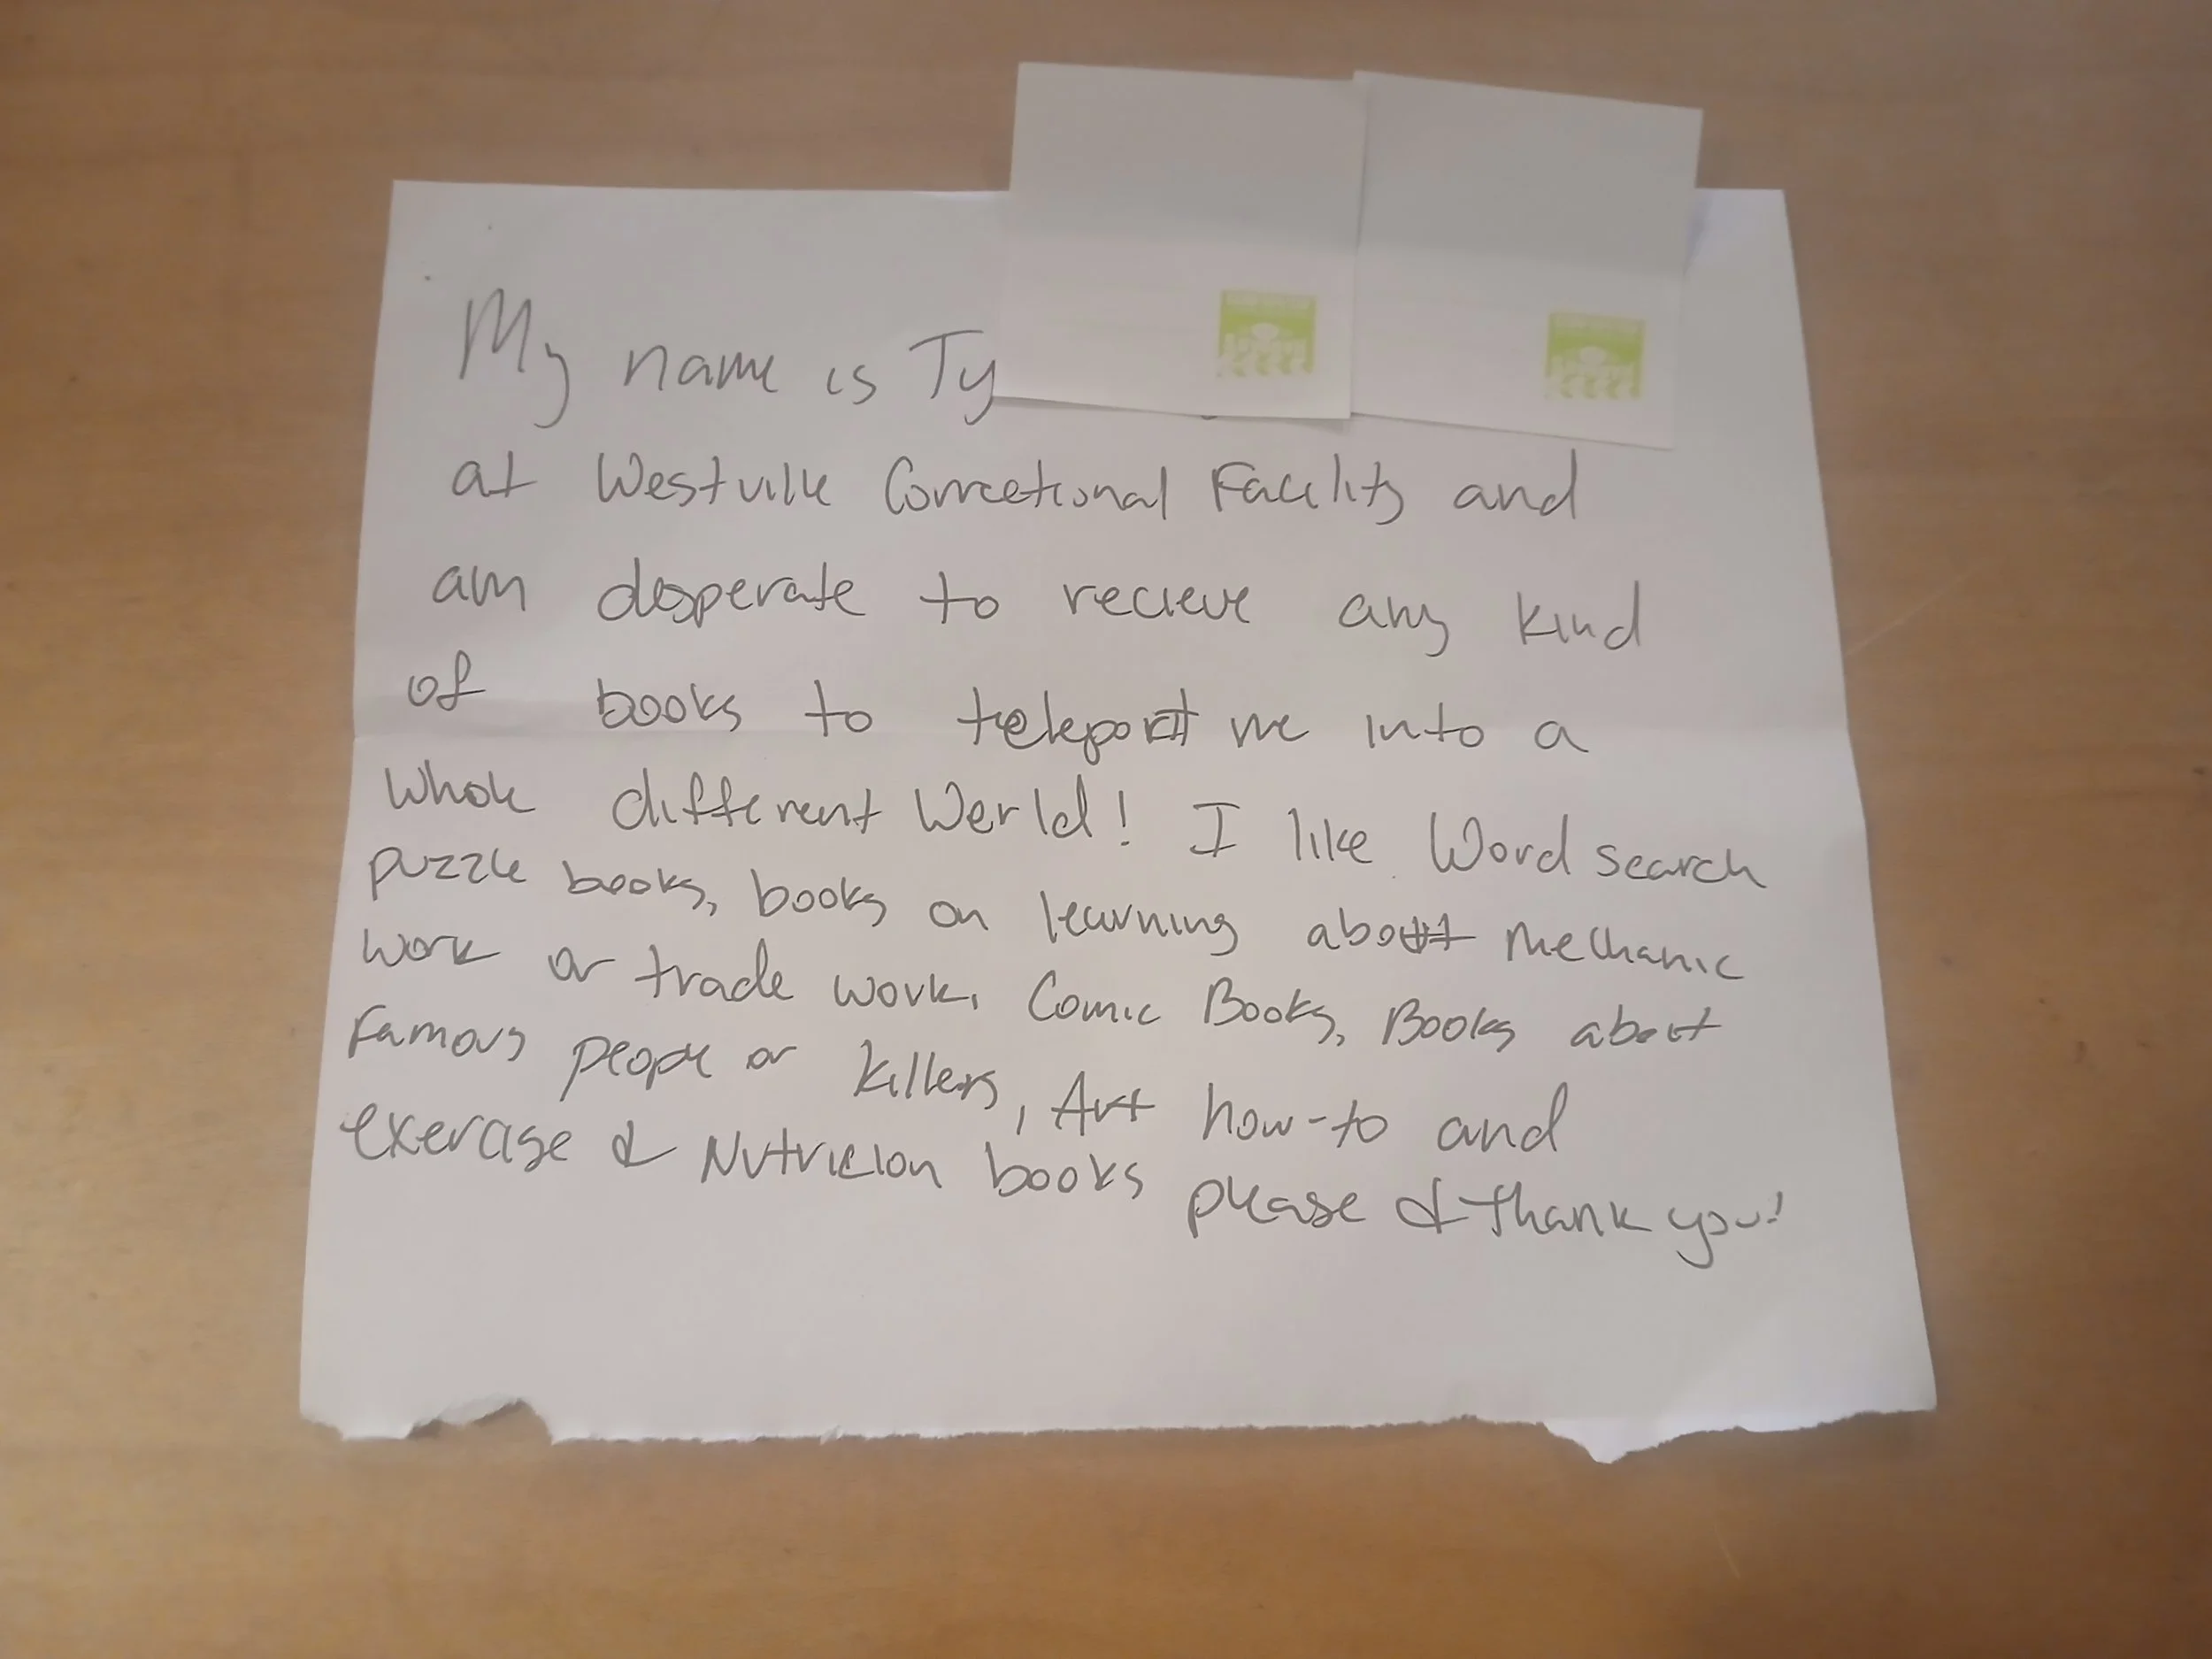 My name is Ty
at Westville Correctional Facility and
am desperate to recieve any kind
of books to teleport me into a
whole different World! I like Word search
puzzle books, books on learning about Mechanic
work or trade work. Comic Books, Books about
Famous people or killers, Art how-to and
exercise & Nutricion books please & thank you!